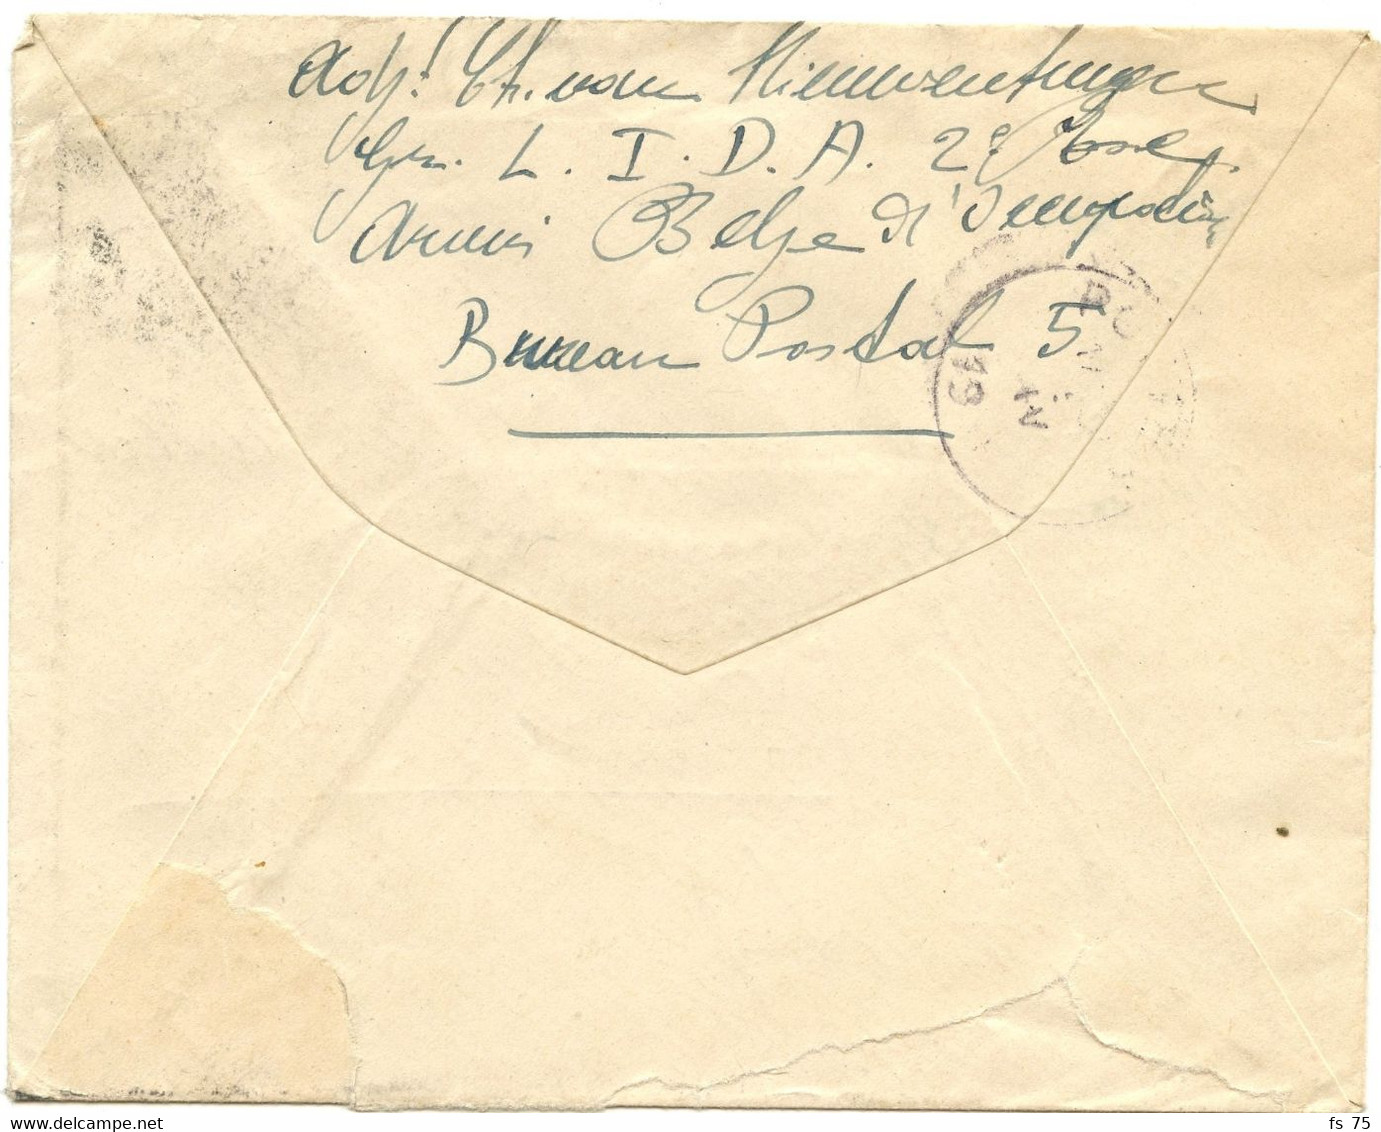 Adjt Ch. van Nieuwenhuysen
Gr. L. I. D. A. 2e
Armée Belge d'Occupation
Bureau Postal 5
19
delcampe.net
fs_75